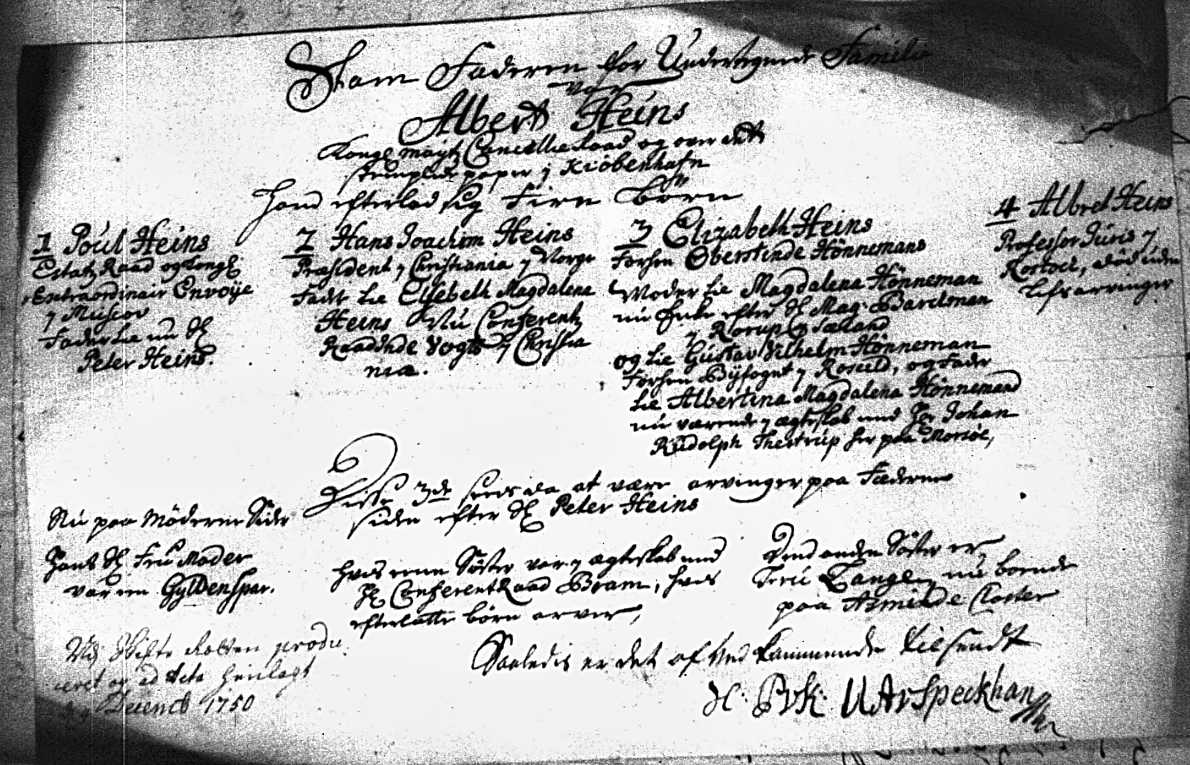 Stam Faderen for Undertegnede Familie
var
Albert Heins
Kongl: mayts Cancellie Raad og over det
stemplede papir j Kiöbenhafn
Hand efterlod sig fire Börn
1 Poul Heins
Etats Raad og Kongl:
Extraordinair Envoÿe
j
Fader til nu Sl:
Peter Heins.
2 Hans Joachim Heins
Præsident j Christiania j Norge
Fader til Elsebeth Magdalena
Heins Nu Conferentz
Raadinde Vogt j Christia
nia.
3 Elizabeth Heins
Forhen Oberstinde Hönnemans
Moder til Magdalena Hönneman
nu Enke efter Sl: Mag: Bartsman
j Siælland
og til Gustav Vilhelm Hönneman
Forhen Bÿfoget j, og Fader
til Albertina Magdalena Hönneman
nu værende j ægteskab med Hr Johan
Rudolph Thestrup her paa Morsöe,
4 Albret Heins
Professor Juris j
Rostock, döde uden
lifs arvinger
Disse 3de at være arvinger paa Faderne
siden efter Sl: Peter Heins
Nu paa Möderne Sider
Hans Sl: Frue Moder
var en Gyldenspar.
hvis eene Söster var j ægteskab med
Sl: Conferent Raad Bram, hvis
efterlatte börn arver,
Dend anden Söster er,
Frue Lange, nu boende
paa Asmilde Closter
Saaledis er det af Ved kommende tilsendt
Ved Skifte Retten produ
ceret og ad Acta henlagt
d. 9 Decemb 1750